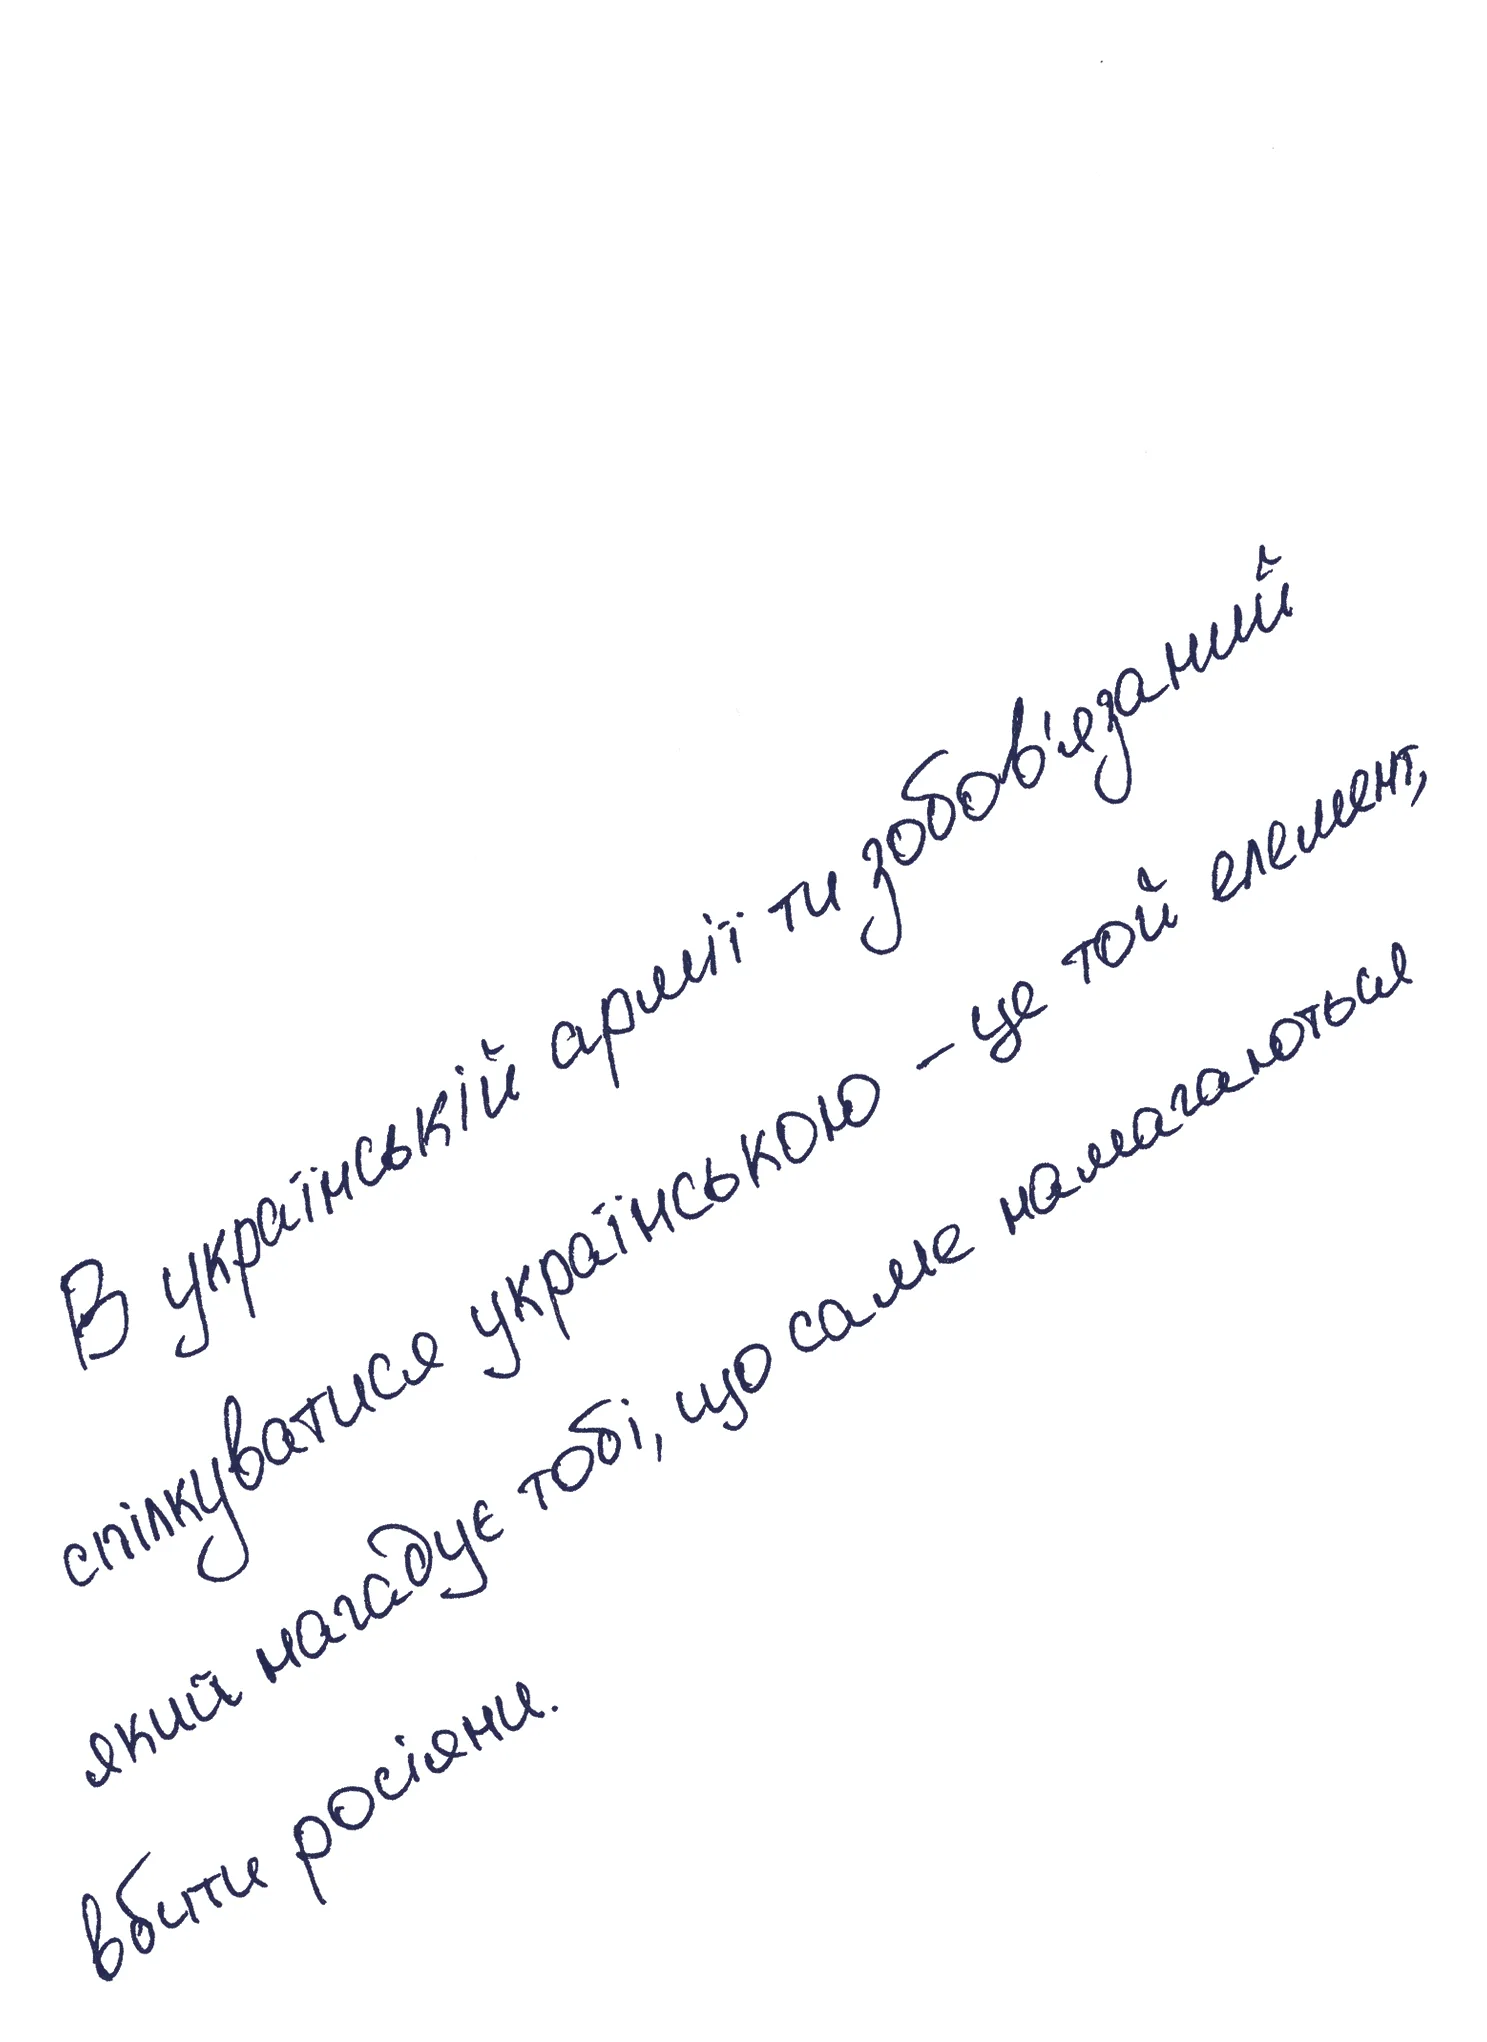 В українській армії ти зобов'язаний
спілкуватися українською - це той елемент,
який нагадує тобі, що саме намагаються
вбити росіяни.